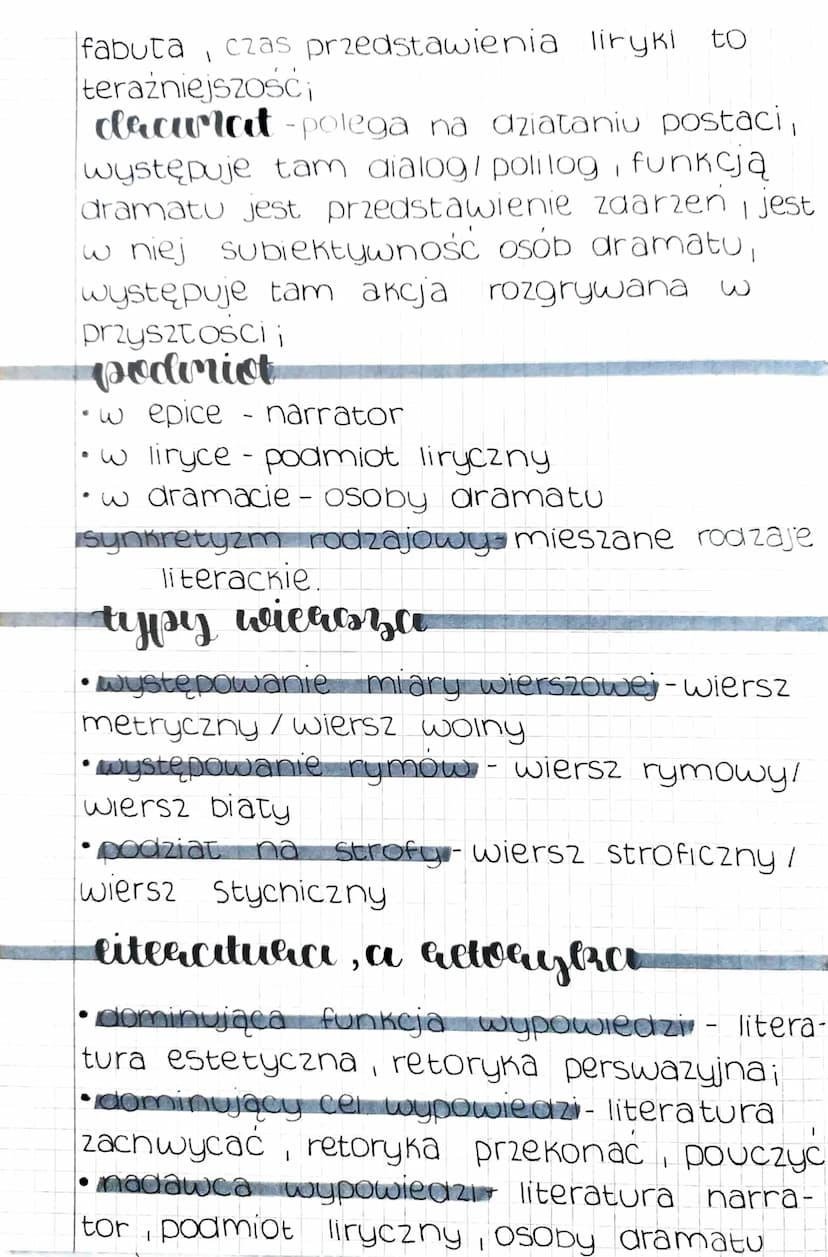 fabuła, czas przedstawienia liryki to
teraźniejszość;
dramat - polega na działaniu postaci,
występuje tam dialog/polilog, funkcją
dramatu jest przedstawienie zdarzeń, jest
w niej subiektywność osób dramatu,
występuje tam akcja rozgrywana w
przyszłości;
podmiot
• w epice - narrator
• w liryce - podmiot liryczny
• w dramacie - osoby dramatu
synkretyzm rodzajowy - mieszane rodzaje
literackie.
typy wiersza
• występowanie miary wierszowej - wiersz
metryczny / wiersz wolny
• występowanie rymów - wiersz rymowy/
wiersz biały
• podział na strofy - wiersz stroficzny /
wiersz stychiczny
literatura, a retoryka
• dominująca funkcja wypowiedzi - litera-
tura estetyczna, retoryka perswazyjna;
• dominujący cel wypowiedzi - literatura
zachwycać, retoryka przekonać, pouczyć
• nadawca wypowiedzi - literatura narra-
tor, podmiot liryczny, osoby dramatu